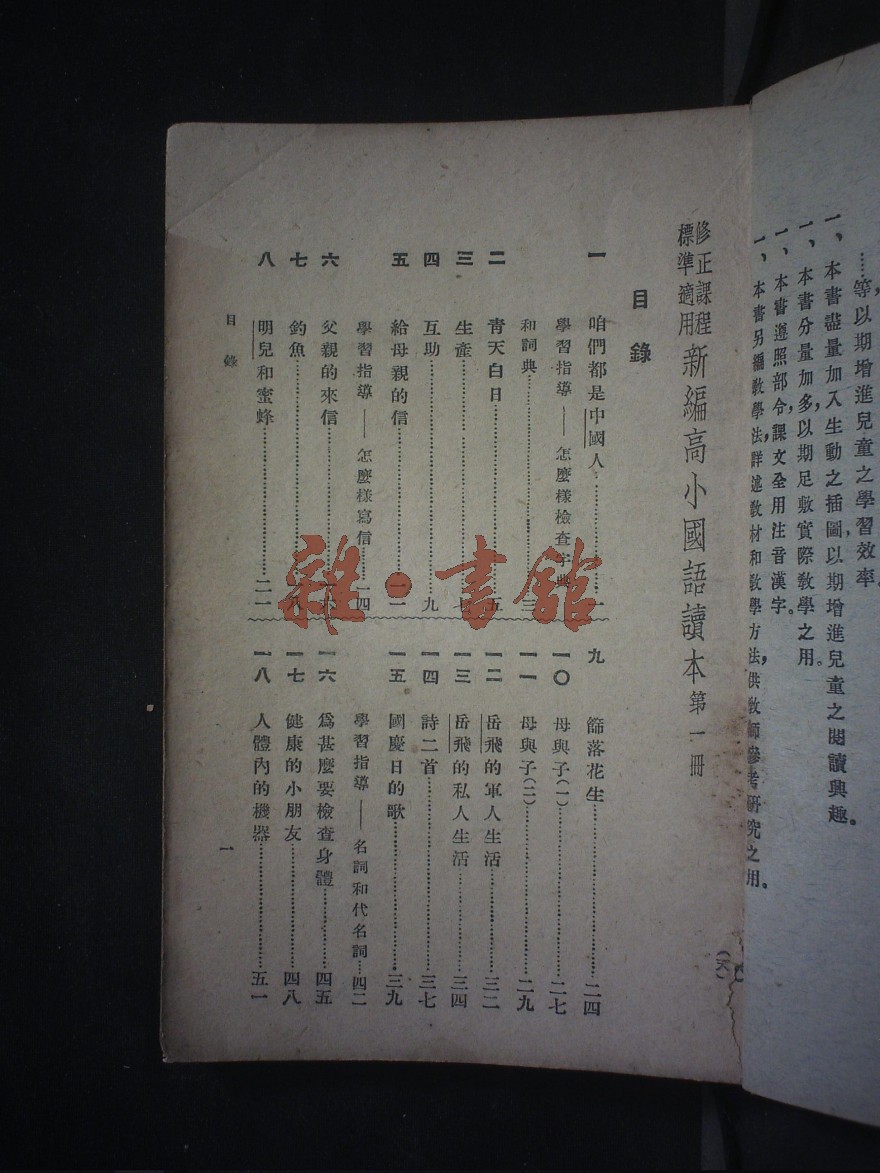 ……等，以期增進兒童之學習效率。
一、本書盡量加入生動之插圖，以期增進兒童之閱讀興趣。
一、本書分量加多，以期足敷實際教學之用。
一、本書遵照部令，課文全用注音漢字。
一、本書另編教學法，詳述教材和教學方法，供教師參考研究之用。
修正課程標準適用 新編高小國語讀本 第一冊
目錄
一 咱們都是中國人……一
學習指導——怎麼樣檢查字典
和詞典……三
二 青天白日……五
三 生產……七
四 互助……九
五 給母親的信……一一
學習指導——怎麼樣寫信……一四
六 父親的來信……一六
七 釣魚……一八
八 明兒和蜜蜂……二一
九 篩落花生……二四
一〇 母與子（一）……二七
一一 母與子（二）……二九
一二 岳飛的軍人生活……三二
一三 岳飛的私人生活……三四
一四 詩二首……三七
一五 國慶日的歌……三九
學習指導——名詞和代名詞……四二
一六 為甚麼要檢查身體……四五
一七 健康的小朋友……四八
一八 人體內的機器……五一
目錄
一
雜·書館